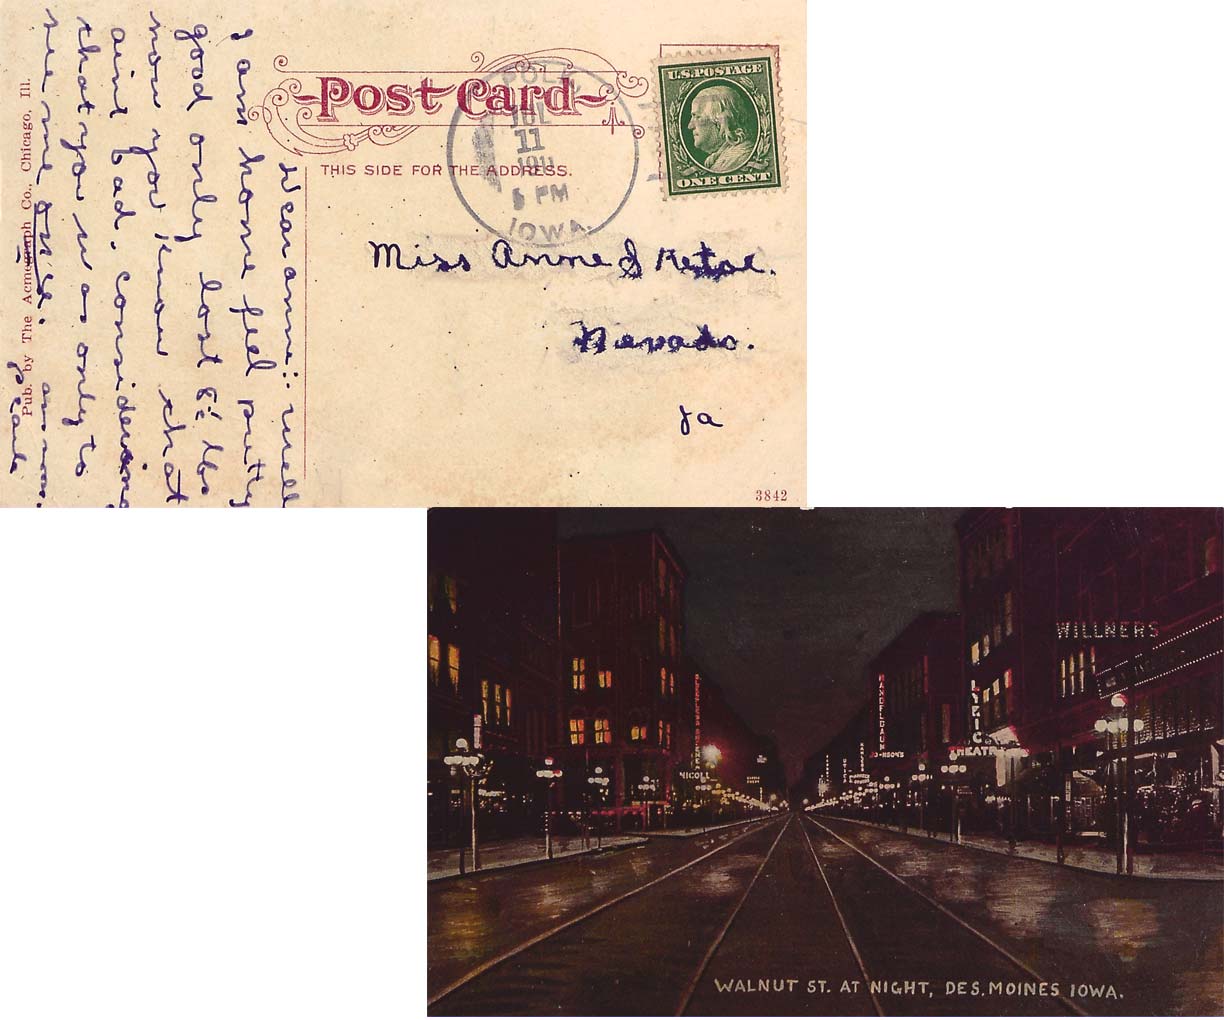 Post Card
THIS SIDE FOR THE ADDRESS.
POLK
JUL
11
PM
IOWA
U.S. POSTAGE
ONE CENT
Miss Anne S
Nevada.
Ia
Dear anne:: well
I am home feel pretty
good only lost lbs
now you know that
aint bad. considering
that you was only to
see me once. answer.
Pearl
Pub. by The Acmegraph Co., Chicago, Ill.
3842
WILLNERS
LYRIC
THEATRE
MANDELBAUM
NICOLL
WALNUT ST. AT NIGHT, DES. MOINES IOWA.